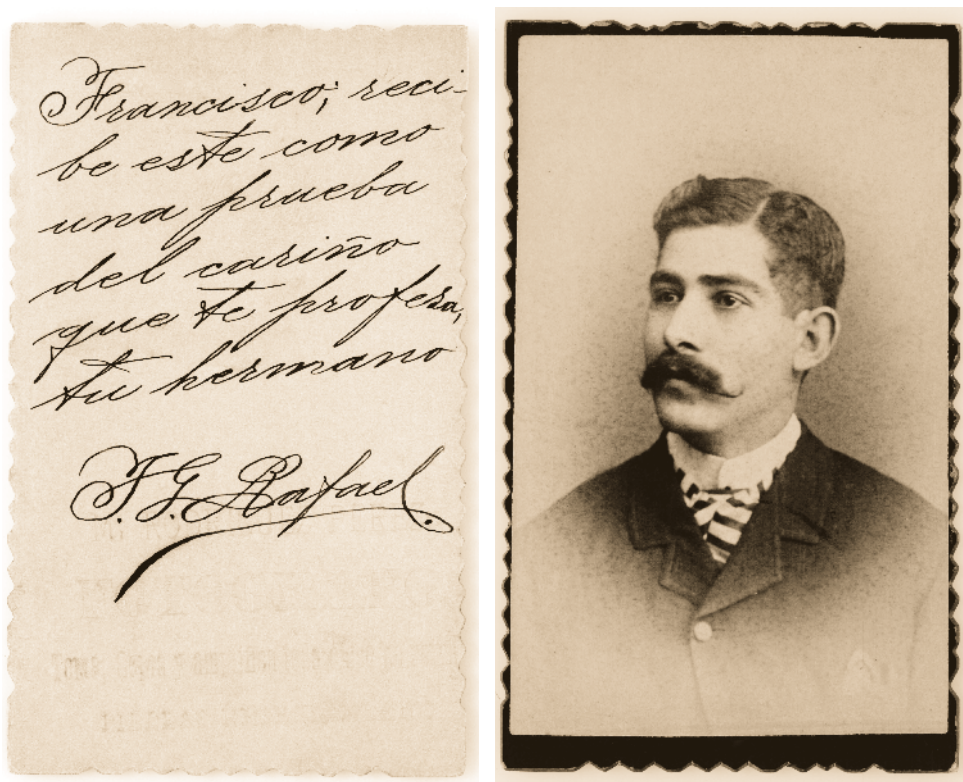 Francisco; reci-
be este como
una prueba
del cariño
que te profesa,
tu hermano
F. G. Rafael.